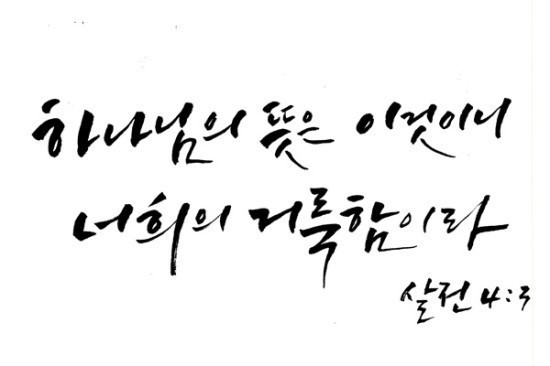 하나님의 뜻은 이것이니
너희의 거룩함이라
살전 4:3